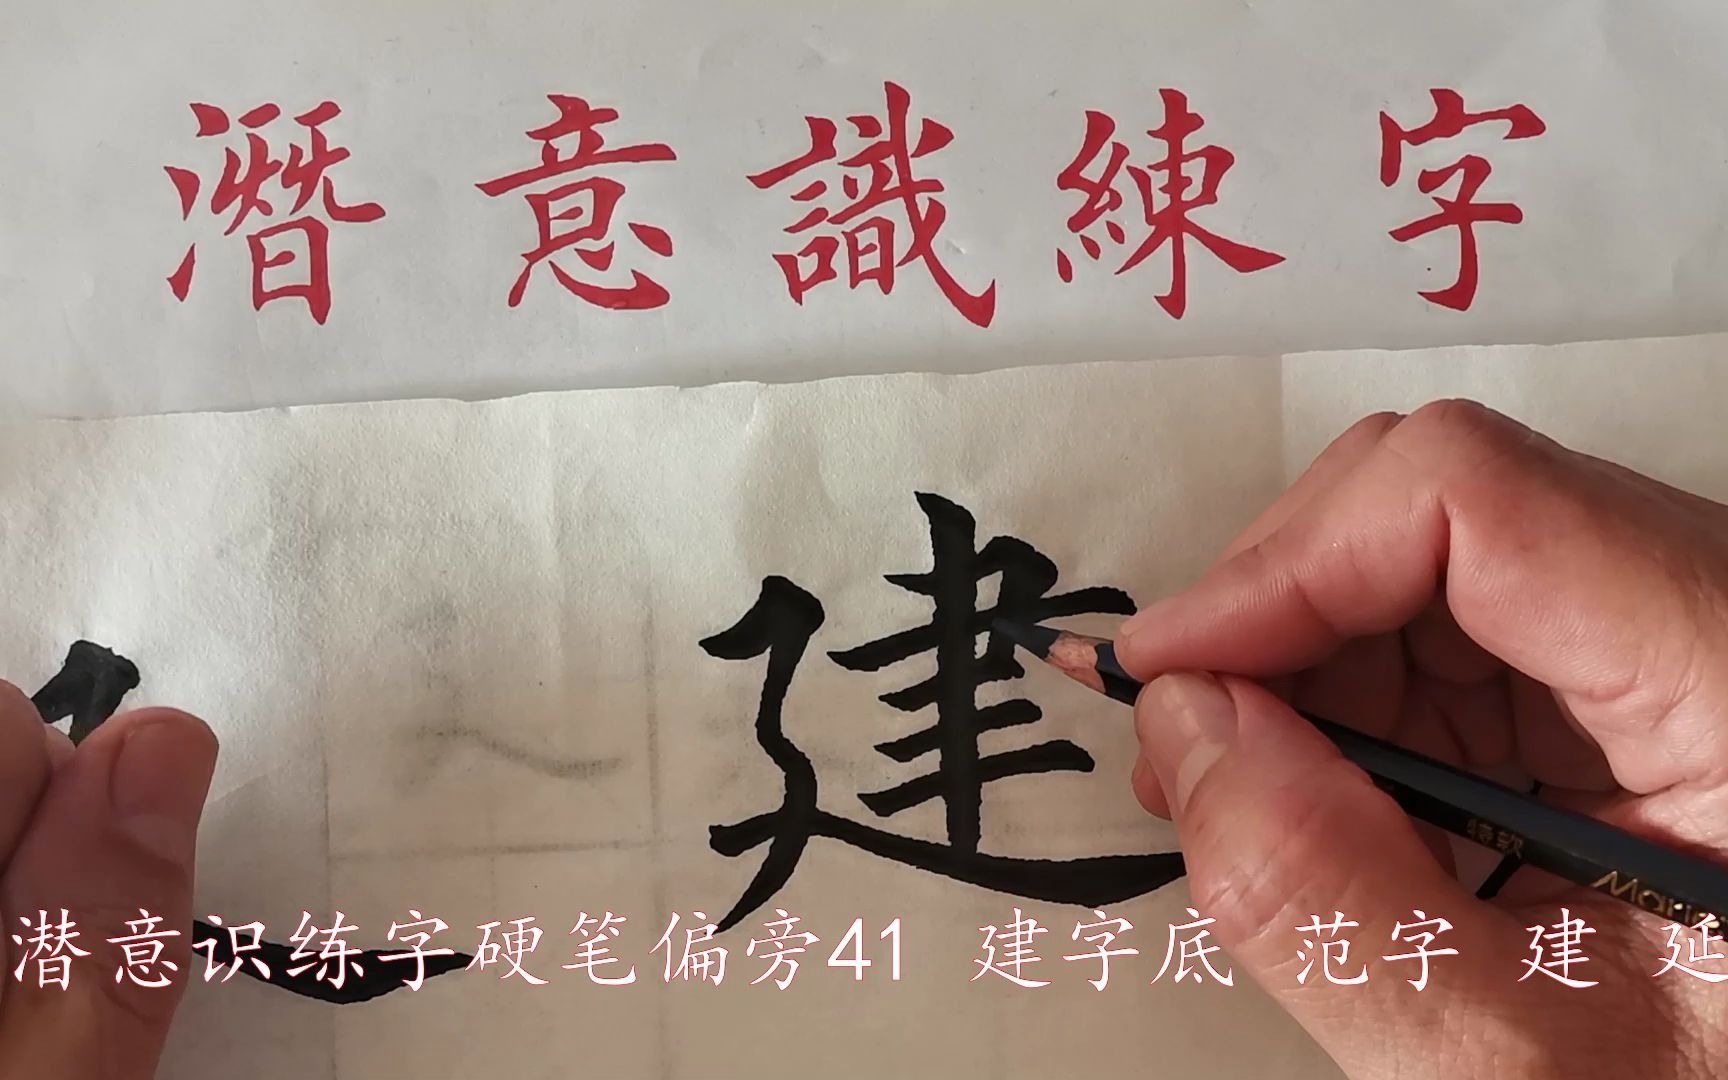 潛意識練字
建
特软 Mar
潜意识练字硬笔偏旁41 建字底 范字 建 延